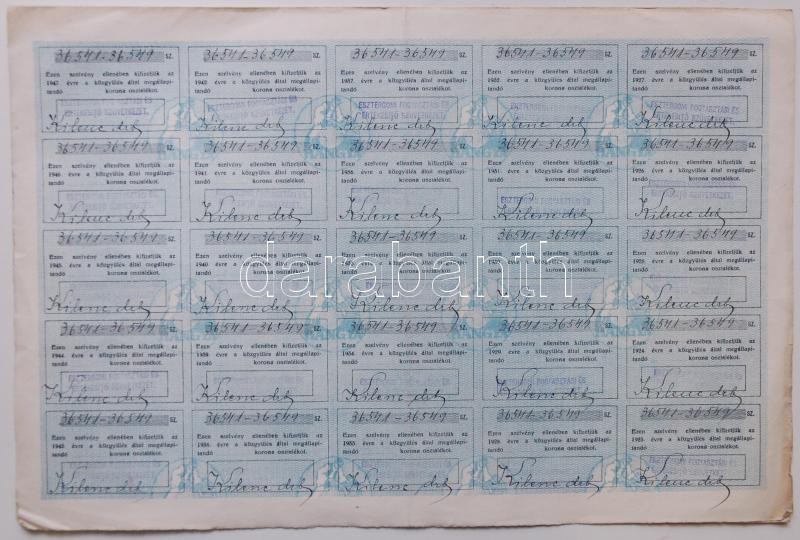 36541-36549 SZ.
Ezen szelvény ellenében kifizetjük az
1947. évre a közgyűlés által megállapi-
tandó korona osztalékot.
Kilenc drb
36541-36549 SZ.
Ezen szelvény ellenében kifizetjük az
1942. évre a közgyűlés által megállapi-
tandó korona osztalékot.
Kilenc drb
36541-36549 SZ.
Ezen szelvény ellenében kifizetjük az
1937. évre a közgyűlés által megállapi-
tandó korona osztalékot.
ESZTERGOMI FOGYASZTÁSI ÉS
ÉRTÉKESITŐ SZÖVETKEZET.
Kilenc drb
36541-36549 SZ.
Ezen szelvény ellenében kifizetjük az
1932. évre a közgyűlés által megállapi-
tandó korona osztalékot.
Kilenc drb
36541-36549 SZ.
Ezen szelvény ellenében kifizetjük az
1927. évre a közgyűlés által megállapi-
tandó korona osztalékot.
ESZTERGOMI FOGYASZTÁSI ÉS
ÉRTÉKESITŐ SZÖVETKEZET.
Kilenc drb
36541-36549 SZ.
Ezen szelvény ellenében kifizetjük az
1946. évre a közgyűlés által megállapi-
tandó korona osztalékot.
Kilenc drb
36541-36549 SZ.
Ezen szelvény ellenében kifizetjük az
1941. évre a közgyűlés által megállapi-
tandó korona osztalékot.
Kilenc drb
36541-36549 SZ.
Ezen szelvény ellenében kifizetjük az
1936. évre a közgyűlés által megállapi-
tandó korona osztalékot.
Kilenc drb
36541-36549 SZ.
Ezen szelvény ellenében kifizetjük az
1931. évre a közgyűlés által megállapi-
tandó korona osztalékot.
Kilenc drb
36541-36549 SZ.
Ezen szelvény ellenében kifizetjük az
1926. évre a közgyűlés által megállapi-
tandó korona osztalékot.
Kilenc drb
36541-36549 SZ.
Ezen szelvény ellenében kifizetjük az
1945. évre a közgyűlés által megállapi-
tandó korona osztalékot.
Kilenc drb
36541-36549 SZ.
Ezen szelvény ellenében kifizetjük az
1940. évre a közgyűlés által megállapi-
tandó korona osztalékot.
Kilenc drb
36541-36549 SZ.
Ezen szelvény ellenében kifizetjük az
1935. évre a közgyűlés által megállapi-
tandó korona osztalékot.
Kilenc drb
36541-36549 SZ.
Ezen szelvény ellenében kifizetjük az
1930. évre a közgyűlés által megállapi-
tandó korona osztalékot.
Kilenc drb
36541-36549 SZ.
Ezen szelvény ellenében kifizetjük az
1925. évre a közgyűlés által megállapi-
tandó korona osztalékot.
Kilenc drb
darabanth
36541-36549 SZ.
Ezen szelvény ellenében kifizetjük az
1944. évre a közgyűlés által megállapi-
tandó korona osztalékot.
Kilenc drb
36541-36549 SZ.
Ezen szelvény ellenében kifizetjük az
1939. évre a közgyűlés által megállapi-
tandó korona osztalékot.
Kilenc drb
36541-36549 SZ.
Ezen szelvény ellenében kifizetjük az
1934. évre a közgyűlés által megállapi-
tandó korona osztalékot.
Kilenc drb
36541-36549 SZ.
Ezen szelvény ellenében kifizetjük az
1929. évre a közgyűlés által megállapi-
tandó korona osztalékot.
Kilenc drb
36541-36549 SZ.
Ezen szelvény ellenében kifizetjük az
1924. évre a közgyűlés által megállapi-
tandó korona osztalékot.
Kilenc drb
36541-36549 SZ.
Ezen szelvény ellenében kifizetjük az
1943. évre a közgyűlés által megállapi-
tandó korona osztalékot.
Kilenc drb
36541-36549 SZ.
Ezen szelvény ellenében kifizetjük az
1938. évre a közgyűlés által megállapi-
tandó korona osztalékot.
Kilenc drb
36541-36549 SZ.
Ezen szelvény ellenében kifizetjük az
1933. évre a közgyűlés által megállapi-
tandó korona osztalékot.
Kilenc drb
36541-36549 SZ.
Ezen szelvény ellenében kifizetjük az
1928. évre a közgyűlés által megállapi-
tandó korona osztalékot.
Kilenc drb
36541-36549 SZ.
Ezen szelvény ellenében kifizetjük az
1923. évre a közgyűlés által megállapi-
tandó korona osztalékot.
Kilenc drb